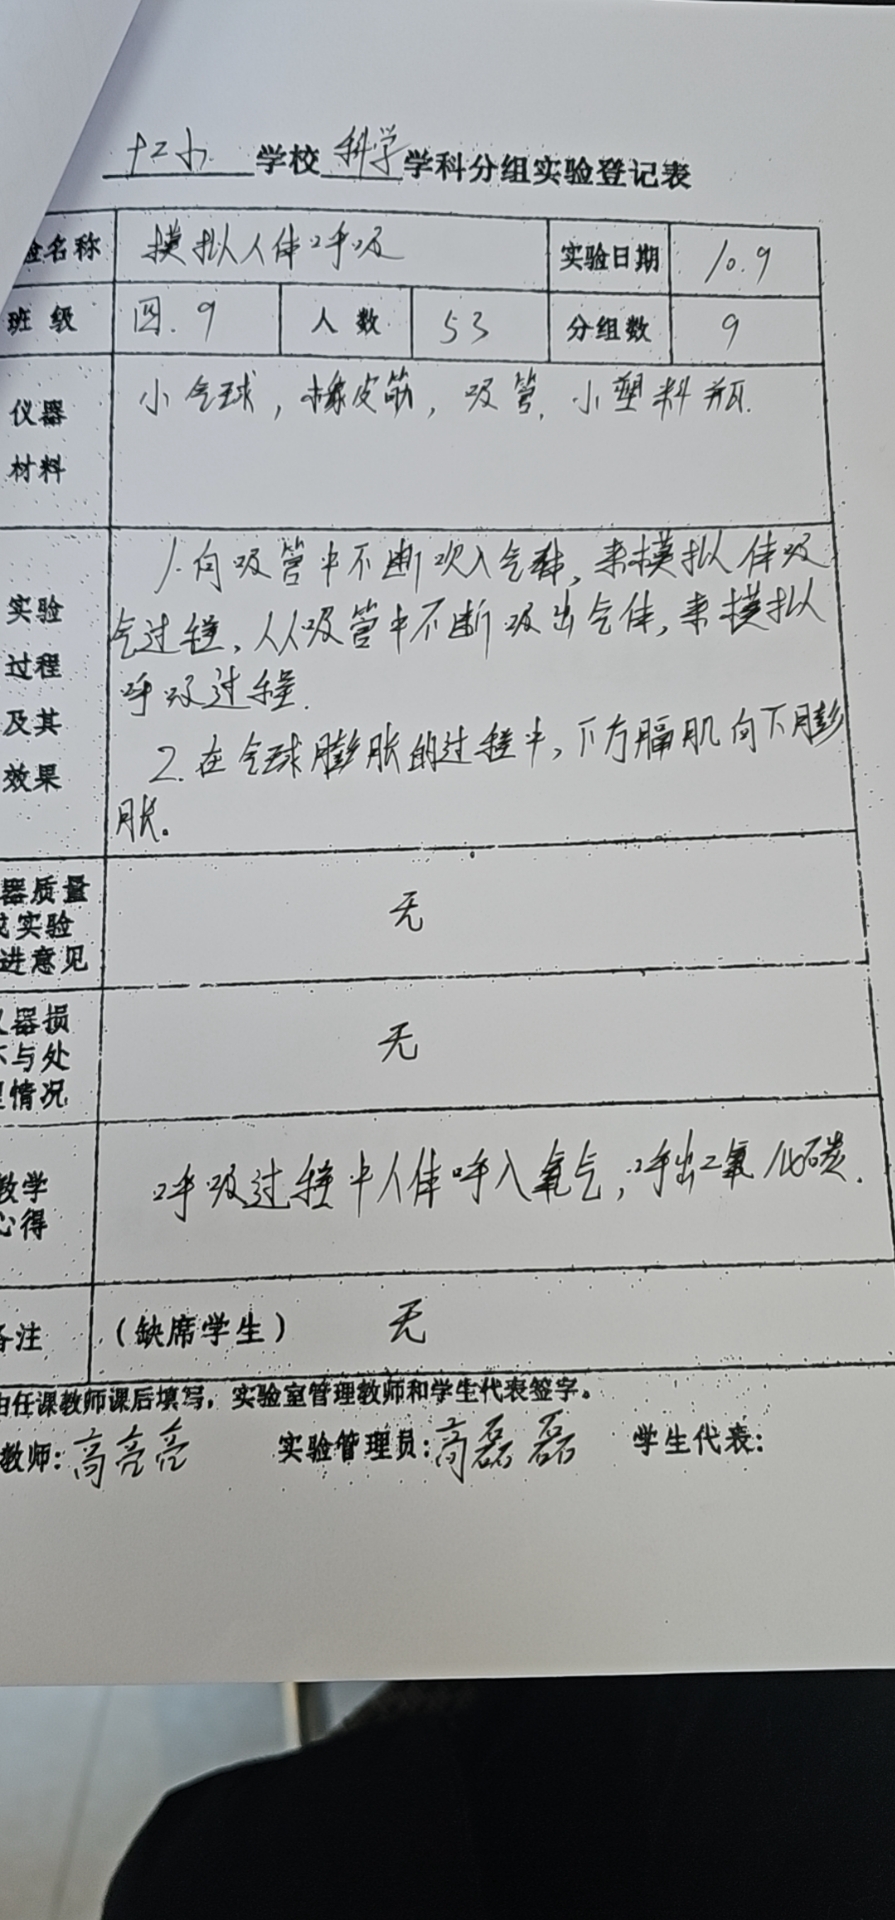 十二小 学校 科学 学科分组实验登记表
验名称 模拟人体呼吸 实验日期 10.9
班 级 四.9 人 数 53 分组数 9
仪器 小气球,橡皮筋,吸管.小塑料瓶.
材料
1.向吸管中不断吹入气体,来模拟人体吸
实验 气过程,从吸管中不断吸出气体,来模拟
过程 呼吸过程.
及其 2.在气球膨胀的过程中,下方膈肌向下膨
效果 胀。
器质量
或实验 无
进意见
仪器损
坏与处 无
理情况
教学 呼吸过程中人体呼入氧气,呼出二氧化碳.
心得
备注 (缺席学生) 无
由任课教师课后填写,实验室管理教师和学生代表签字。
教师:高亮亮 实验管理员:高磊磊 学生代表: